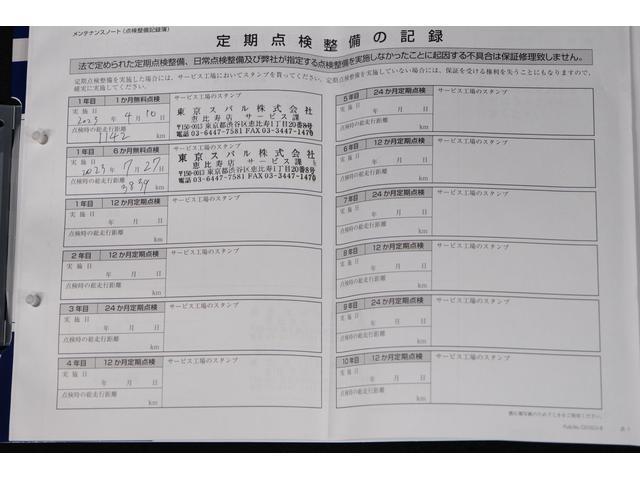 メンテナンスノート（点検整備記録簿）
定期点検整備の記録
法で定められた定期点検整備、日常点検整備及び弊社が指定する点検整備を実施しなかったことに起因する不具合は保証修理致しません。
定期点検整備を実施した場合には、サービス工場においてスタンプを貰ってください。定期点検整備を実施していない場合には、保証を受ける権利を失うことにもなりますので、
確実に実施してください。
1年目 1か月無料点検 サービス工場のスタンプ
実施日
2023年4月10日
点検時の総走行距離
1142 km
東京スバル株式会社
恵比寿店 サービス課
〒150-0013 東京都渋谷区恵比寿1丁目20番8号
電話 03-6447-7581 FAX 03-3447-1470
1年目 6か月無料点検 サービス工場のスタンプ
実施日
2023年7月27日
点検時の総走行距離
3839 km
東京スバル株式会社
恵比寿店 サービス課
〒150-0013 東京都渋谷区恵比寿1丁目20番8号
電話 03-6447-7581 FAX 03-3447-1470
1年目 12か月定期点検 サービス工場のスタンプ
実施日
年 月 日
点検時の総走行距離
km
2年目 12か月定期点検 サービス工場のスタンプ
実施日
年 月 日
点検時の総走行距離
km
3年目 24か月定期点検 サービス工場のスタンプ
実施日
年 月 日
点検時の総走行距離
km
4年目 12か月定期点検 サービス工場のスタンプ
実施日
年 月 日
点検時の総走行距離
km
5年目 24か月定期点検 サービス工場のスタンプ
実施日
年 月 日
点検時の総走行距離
km
6年目 12か月定期点検 サービス工場のスタンプ
実施日
年 月 日
点検時の総走行距離
km
7年目 24か月定期点検 サービス工場のスタンプ
実施日
年 月 日
点検時の総走行距離
km
8年目 12か月定期点検 サービス工場のスタンプ
実施日
年 月 日
点検時の総走行距離
km
9年目 24か月定期点検 サービス工場のスタンプ
実施日
年 月 日
点検時の総走行距離
km
10年目 12か月定期点検 サービス工場のスタンプ
実施日
年 月 日
点検時の総走行距離
km